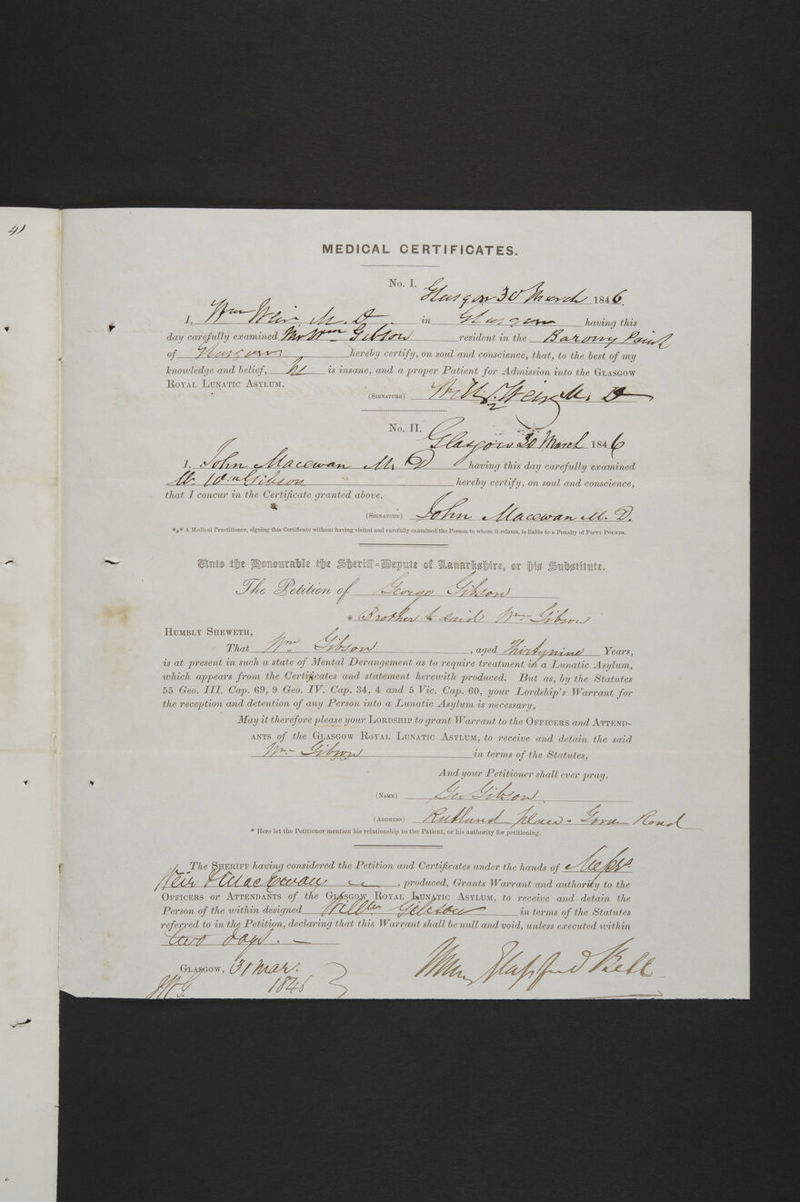 41
MEDICAL CERTIFICATES.
No. I.
Glasgow 30 March 1846.
I, Wm Weir M.D. in Glasgow having this
day carefully examined Mr Wm Gibson resident in the Barony Parish
of Glasgow hereby certify, on soul and conscience, that, to the best of my
knowledge and belief, he is insane, and a proper Patient for Admission into the GLASGOW
ROYAL LUNATIC ASYLUM.
(SIGNATURE) Willm Weir M.D
No. II.
Glasgow 30 March 1846
I, John Macewan M. D having this day carefully examined
Mr Wm Gibson hereby certify, on soul and conscience,
that I concur in the Certificate granted above.
(SIGNATURE) John Macewan M. D.
*⁎* A Medical Practitioner, signing this Certificate without having visited and carefully examined the Person to whom it relates, is liable to a Penalty of FIFTY POUNDS.
Unto the Honourable the Sheriff-Depute of Lanarkshire, or his Substitute.
The Petition of George Gibson
* Brother to said Wm Gibson
HUMBLY SHEWETH,
That Wm Gibson, aged Thirtynine Years,
is at present in such a state of Mental Derangement as to require treatment in a Lunatic Asylum,
which appears from the Certificates and statement herewith produced. But as, by the Statutes
55 Geo. III. Cap. 69, 9 Geo. IV. Cap. 34, 4 and 5 Vic. Cap. 60, your Lordship's Warrant for
the reception and detention of any Person into a Lunatic Asylum is necessary,
May it therefore please your LORDSHIP to grant Warrant to the OFFICERS and ATTEND-
ANTS of the GLASGOW ROYAL LUNATIC ASYLUM, to receive and detain the said
Wm Gibson in terms of the Statutes,
And your Petitioner shall ever pray.
(NAME) Geo Gibson
(ADDRESS) Rutland Place - Govan Road
* Here let the Petitioner mention his relationship to the Patient, or his authority for petitioning.
The SHERIFF having considered the Petition and Certificates under the hands of Messrs
Weir & Macewan, produced, Grants Warrant and authority to the
OFFICERS or ATTENDANTS of the GLASGOW ROYAL LUNATIC ASYLUM, to receive and detain the
Person of the within designed Willm Gibson in terms of the Statutes
referred to in the Petition, declaring that this Warrant shall be null and void, unless executed within
two days. —
GLASGOW, 31 Mar.
1846
Glassford Bell